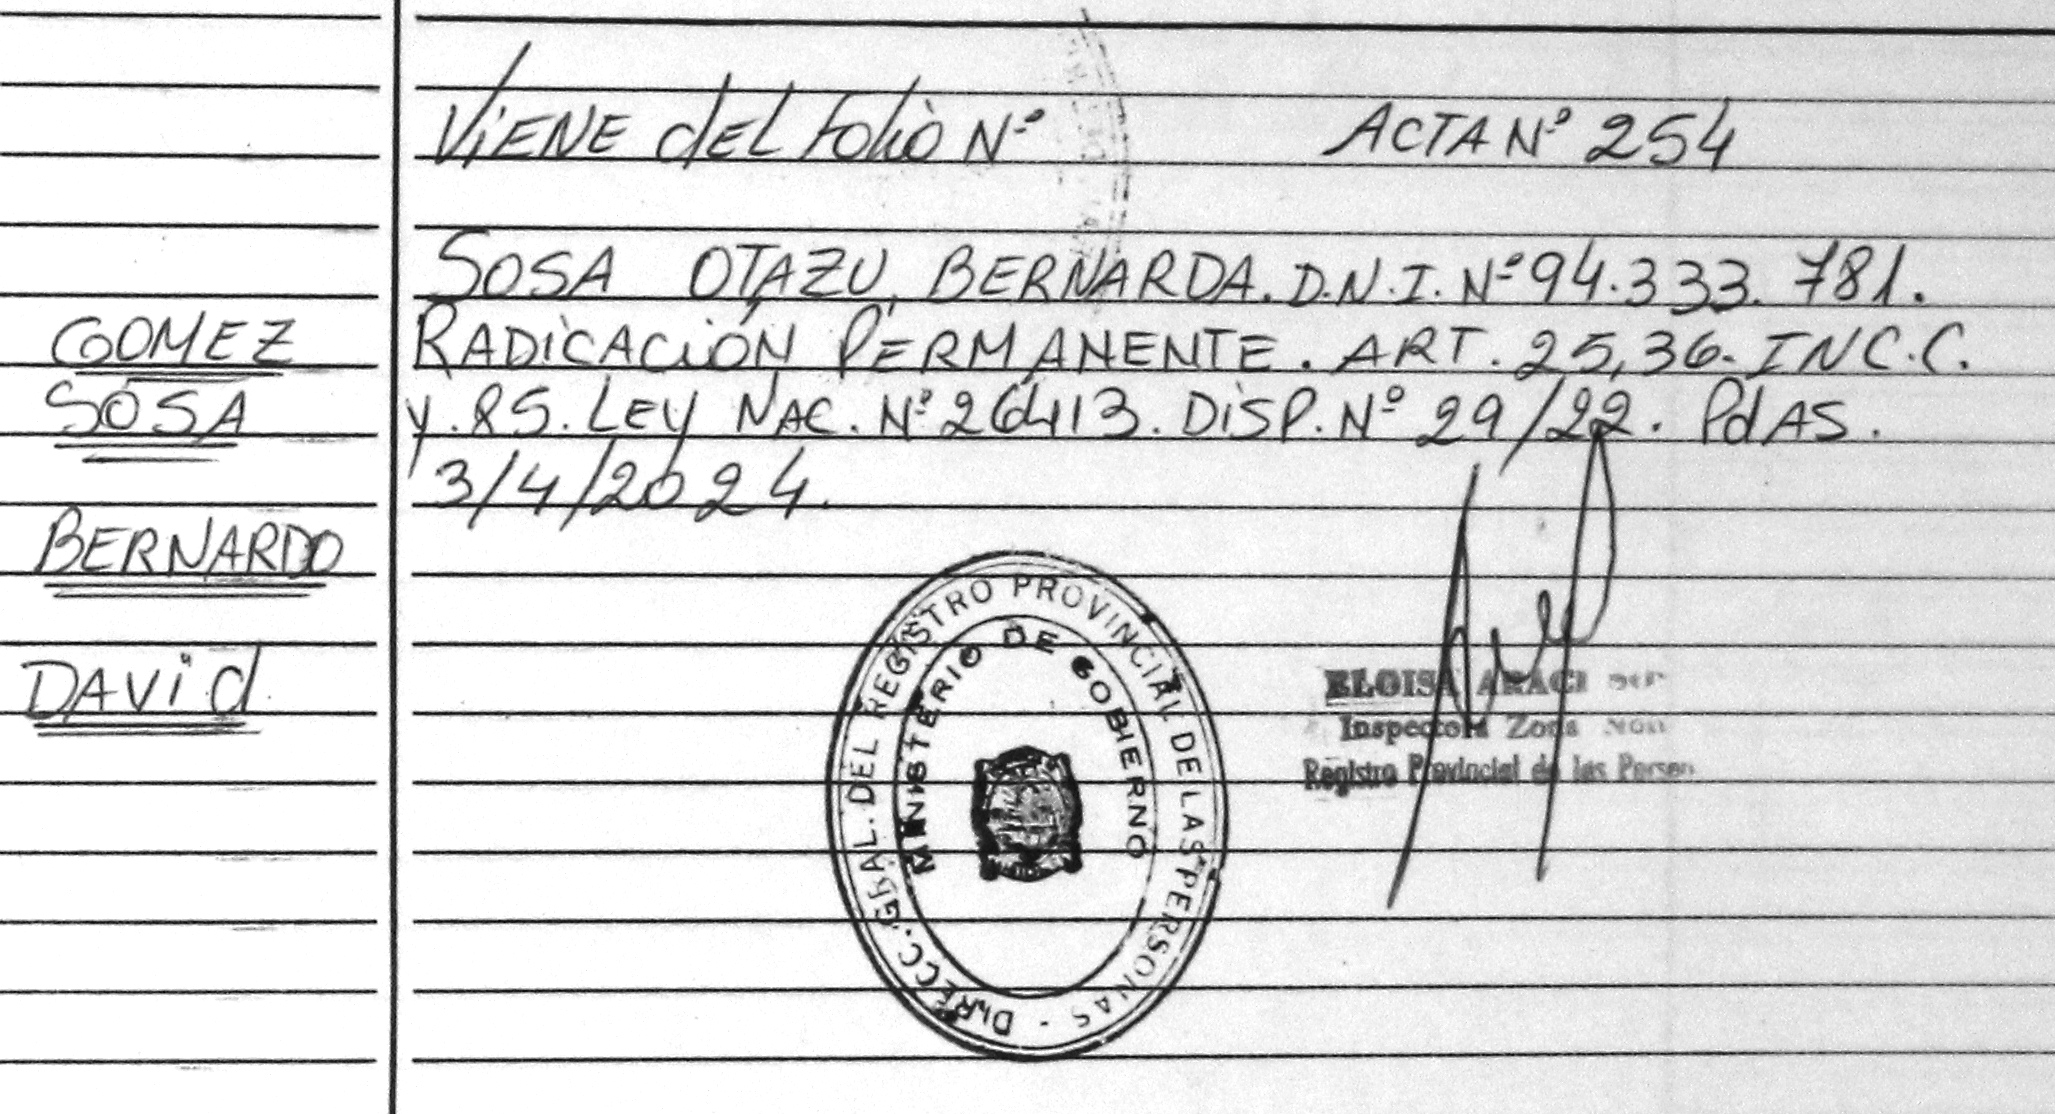 ViENE dEL Folio Nº
ACTA Nº 254
SOSA OTAZU, BERNARDA. D.N.I. Nº 94.333.781.
RADiCACiÓN PERMANENTE. ART. 25,36- INC.C.
y.85. LEY NAC. Nº 26413. DiSP. Nº 29/22. PdAS.
3/4/2024.
GOMEZ
SOSA
BERNARDO
DAVid
DIRECC. GRAL. DEL REGISTRO PROVINCIAL DE LAS PERSONAS -
MINISTERIO DE GOBIERNO
ELOISA ARACI
Inspectora Zona
Registro Provincial de las Person